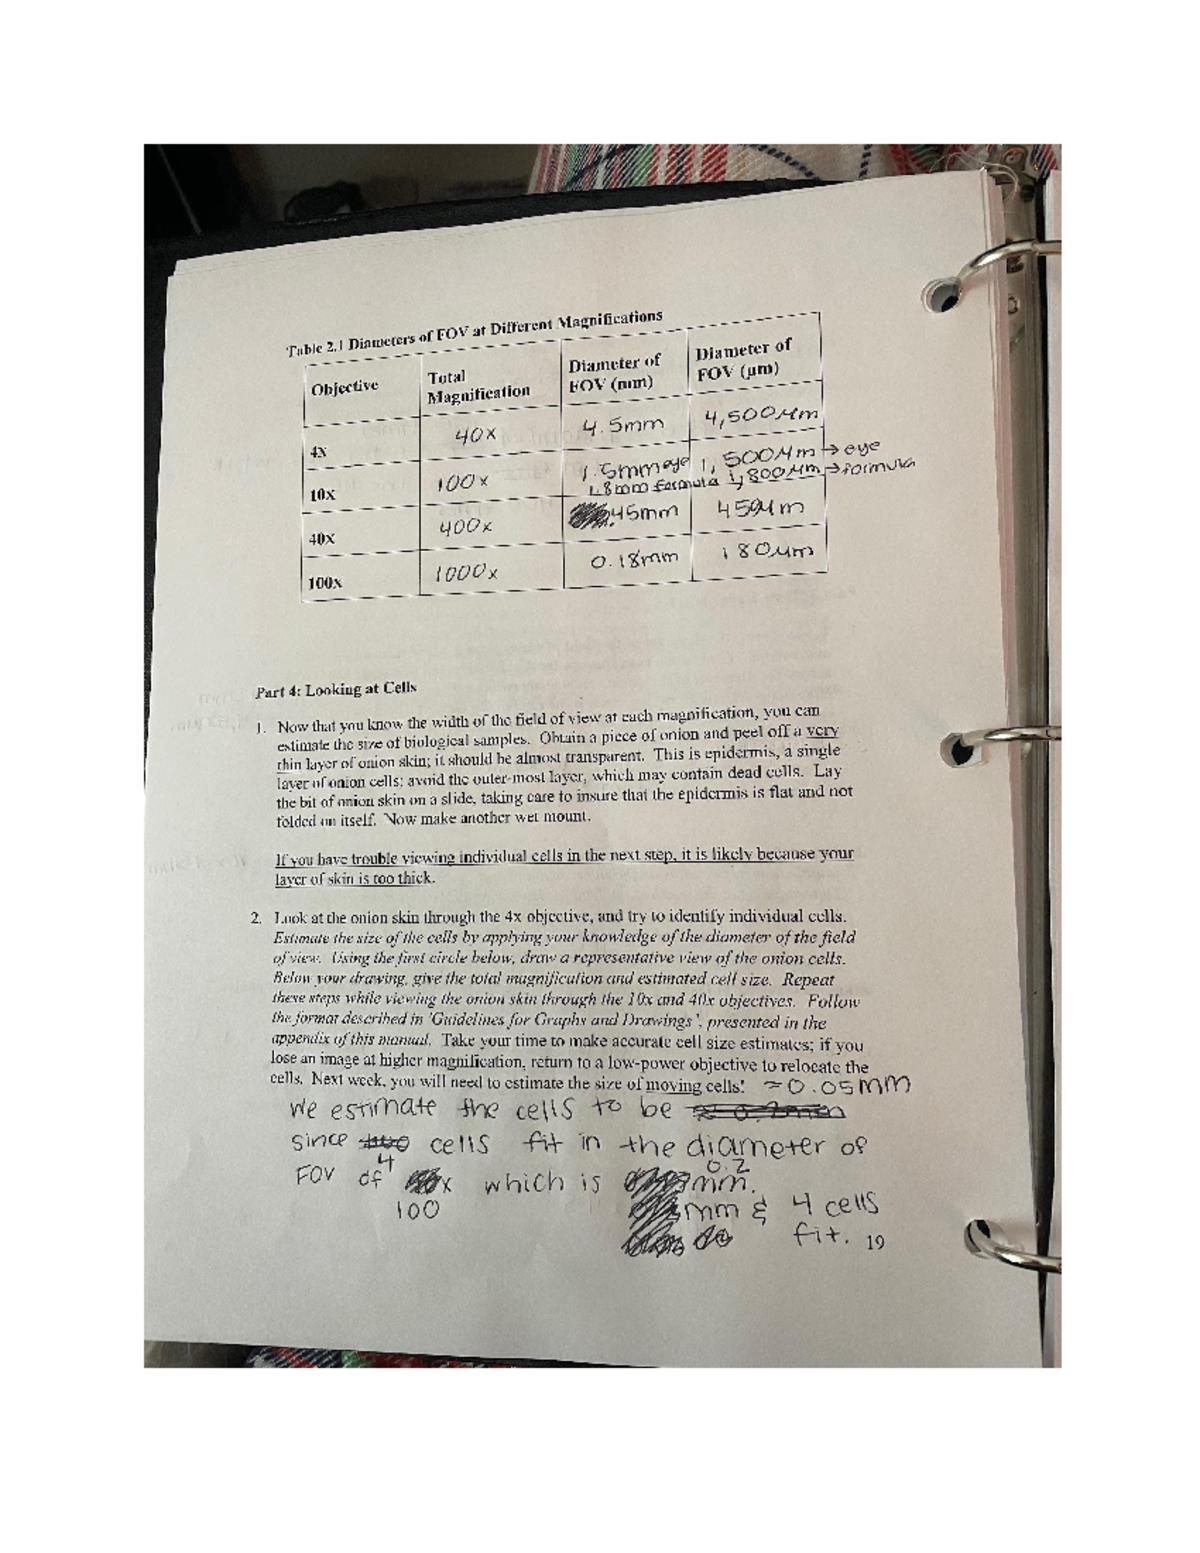 Table 2.1 Diameters of FOV at Different Magnifications
Objective Total Magnification Diameter of FOV (mm) Diameter of FOV (µm)
4x 40x 4.5mm 4,500µm
10x 100x 1.5mm eye 1,500µm → eye
1.8mm formula 1,800µm → formula
40x 400x .45mm 450µm
100x 1000x 0.18mm 180µm
Part 4: Looking at Cells
1. Now that you know the width of the field of view at each magnification, you can
estimate the size of biological samples. Obtain a piece of onion and peel off a very
thin layer of onion skin; it should be almost transparent. This is epidermis, a single
layer of onion cells; avoid the outer-most layer, which may contain dead cells. Lay
the bit of onion skin on a slide, taking care to insure that the epidermis is flat and not
folded on itself. Now make another wet mount.
If you have trouble viewing individual cells in the next step, it is likely because your
layer of skin is too thick.
2. Look at the onion skin through the 4x objective, and try to identify individual cells.
Estimate the size of the cells by applying your knowledge of the diameter of the field
of view. Using the first circle below, draw a representative view of the onion cells.
Below your drawing, give the total magnification and estimated cell size. Repeat
these steps while viewing the onion skin through the 10x and 40x objectives. Follow
the format described in 'Guidelines for Graphs and Drawings', presented in the
appendix of this manual. Take your time to make accurate cell size estimates; if you
lose an image at higher magnification, return to a low-power objective to relocate the
cells. Next week, you will need to estimate the size of moving cells! ≈0.05mm
We estimate the cells to be
since cells fit in the diameter of
4 0.2
FOV of x which is mm.
100 mm & 4 cells
fit. 19